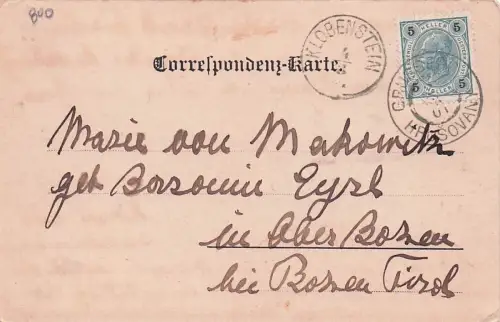 800
Correspondenz-Karte.
KLOBENSTEIN
5 HELLER 5
5 HELLER 5
Marie von Makowitz
geb Baronin Eyrl
in Ober Bozen
bei Bozen Tirol